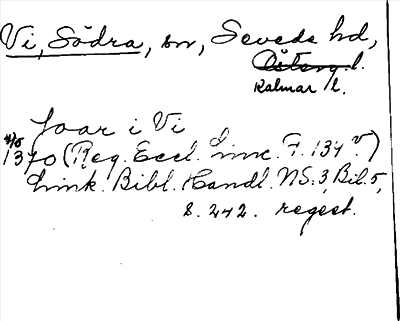 Vi, Södra, sn, Sevede hd,
Österg. l.
Kalmar l.
Joar i Vi
1370 (Reg. Eccl. Linc. F. 134 v.)
Link. Bibl. Handl. NS. 3, Bil. 5,
s. 242. regest.